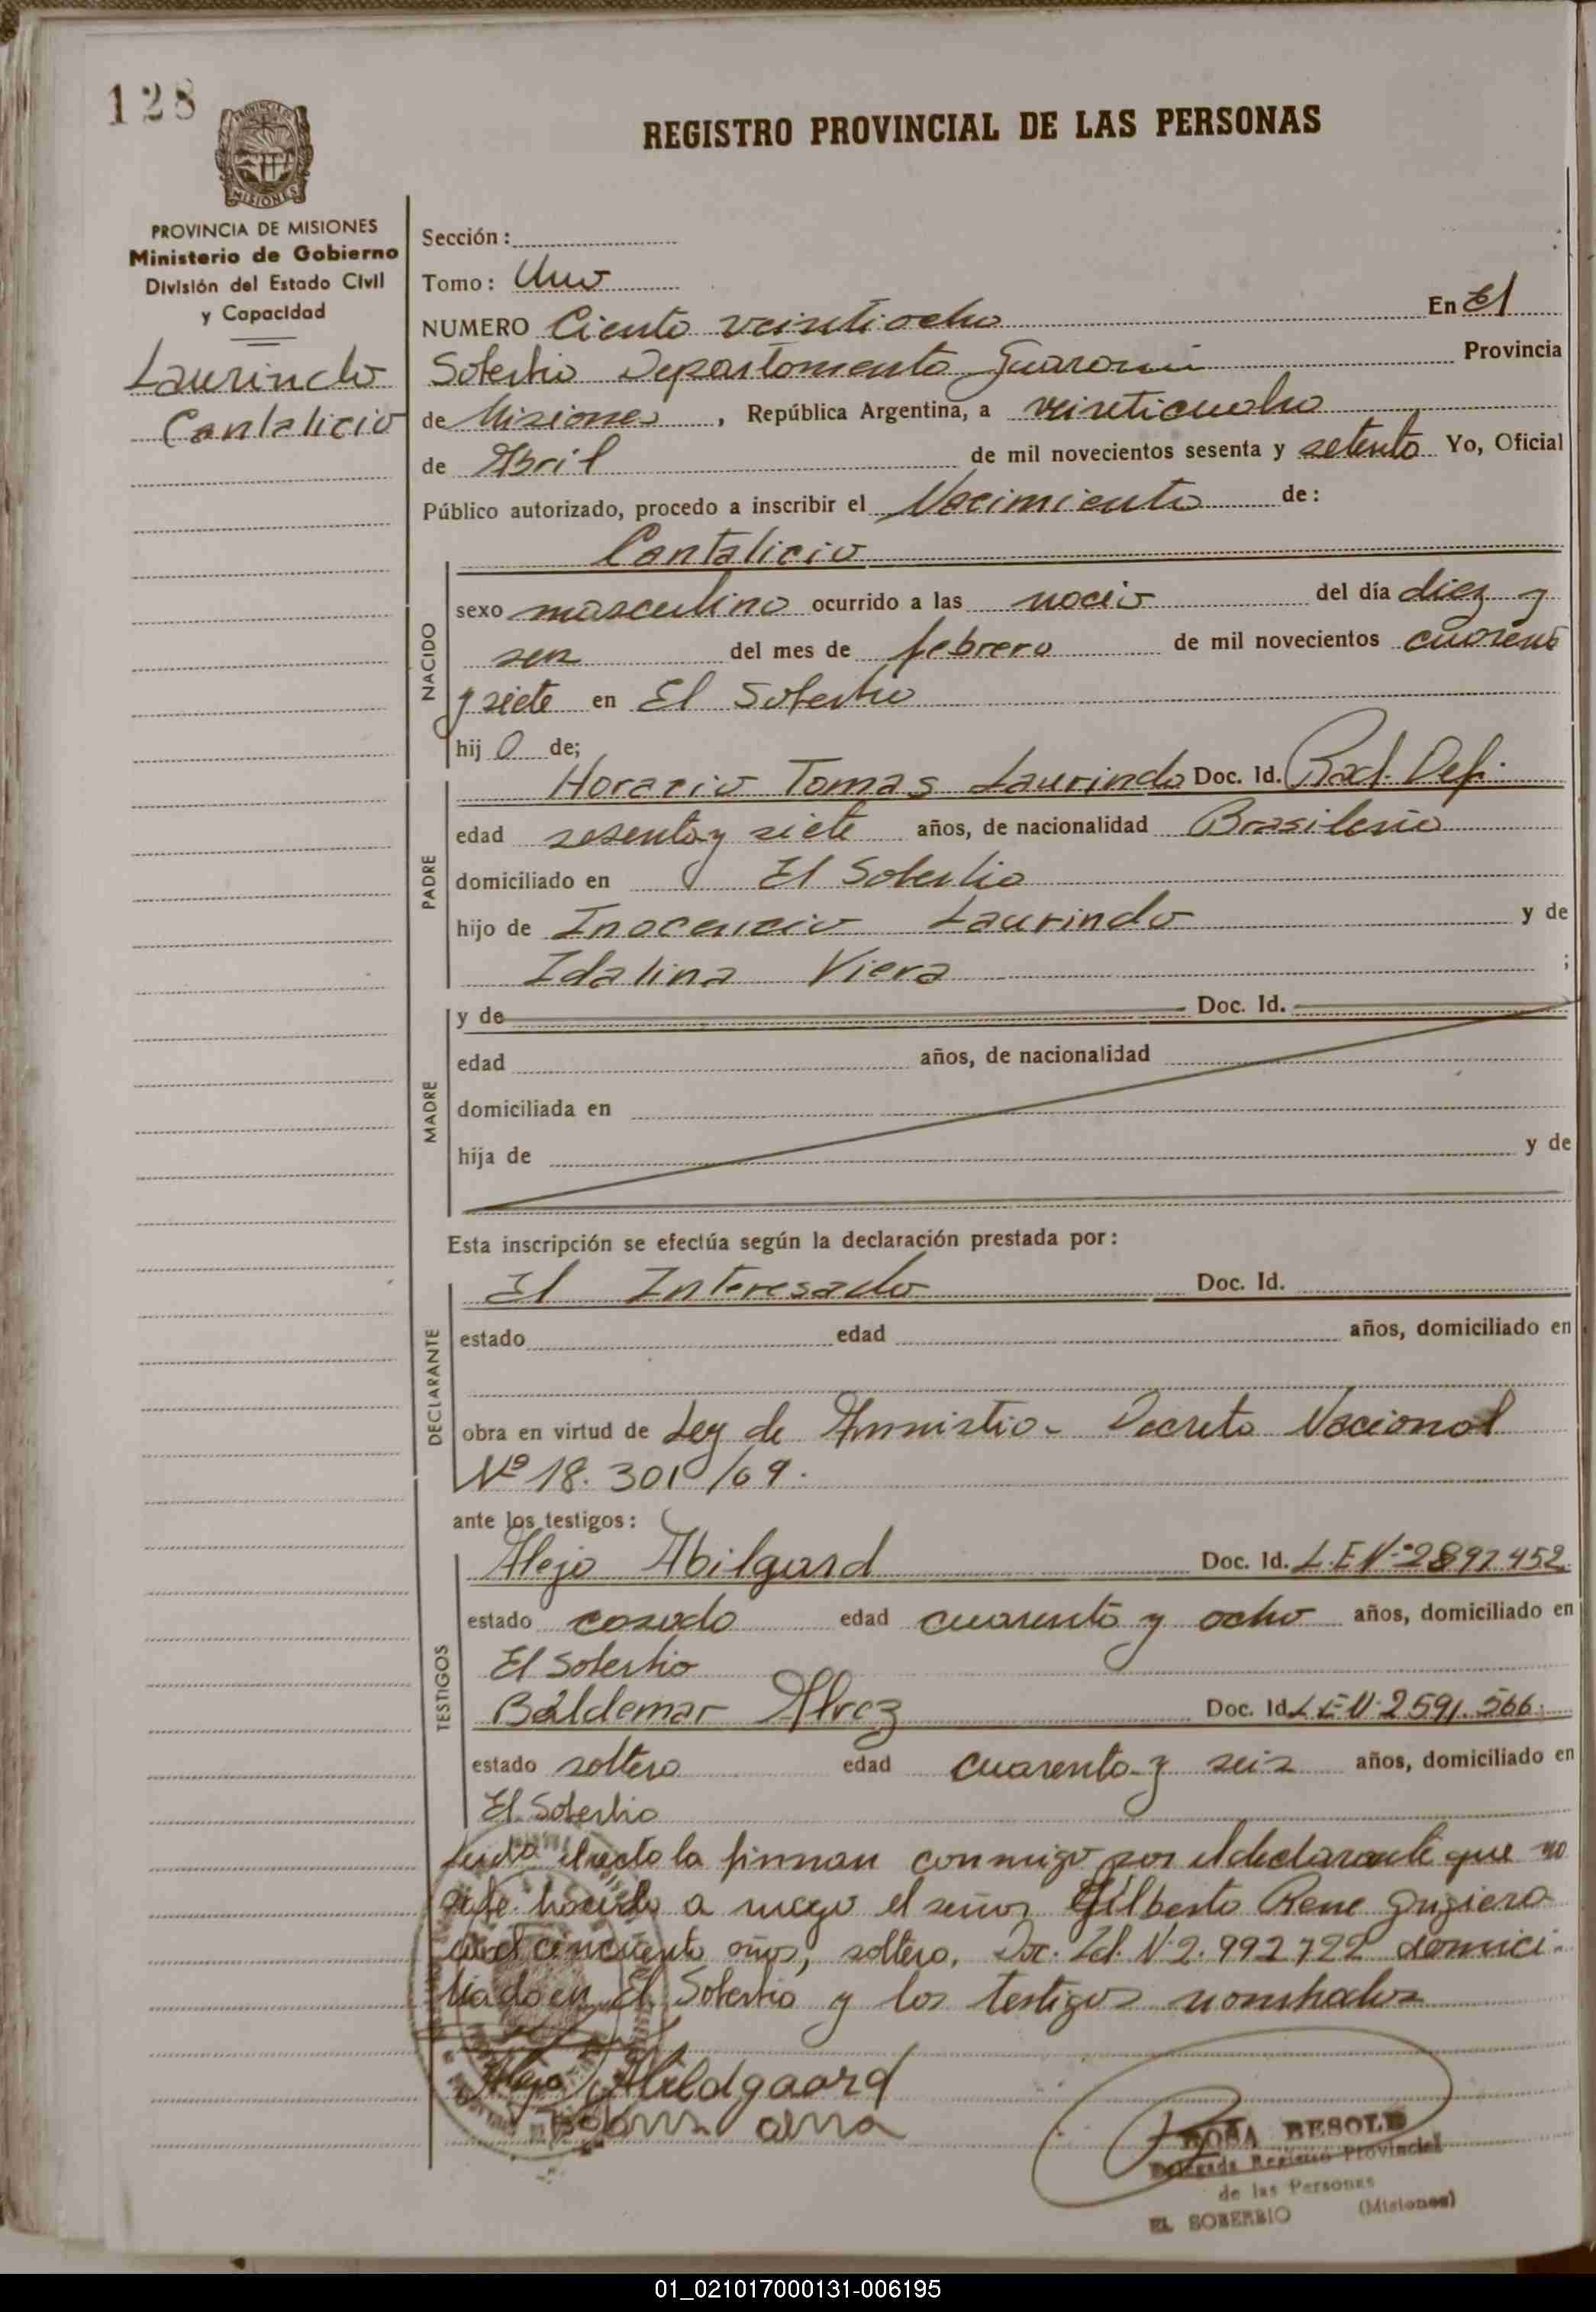 128
PROVINCIA DE MISIONES
Ministerio de Gobierno
División del Estado Civil
y Capacidad
Laurindo
Cantalicio
REGISTRO PROVINCIAL DE LAS PERSONAS
Sección:
Tomo: Uno
NUMERO Ciento veintiocho En El
Soberbio Departamento Guaraní Provincia
de Misiones, República Argentina, a veinticuatro
de Abril de mil novecientos sesenta y setenta Yo, Oficial
Público autorizado, procedo a inscribir el Nacimiento de:
Cantalicio
NACIDO
sexo masculino ocurrido a las del día diez y
seis del mes de febrero de mil novecientos cuarenta
y siete en El Soberbio
hijo de;
PADRE
Horacio Tomas Laurindo Doc. Id. Rad. Def.
edad sesenta y siete años, de nacionalidad Brasileño
domiciliado en El Soberbio
hijo de Inocencio Laurindo y de
Idalina Viera ;
MADRE
y de Doc. Id.
edad años, de nacionalidad
domiciliada en
hija de y de
Esta inscripción se efectúa según la declaración prestada por:
DECLARANTE
El Interesado Doc. Id.
estado edad años, domiciliado en
obra en virtud de Ley de Amnistia - Decreto Nacional
Nº 18.301/69.
ante los testigos:
TESTIGOS
Alejo Abilgard Doc. Id. L.E Nº 2892452
estado casado edad cuarenta y ocho años, domiciliado en
El Soberbio
Baldemar Alvez Doc. Id. L E N. 2591.566
estado soltero edad cuarenta y seis años, domiciliado en
El Soberbio
Leida el acta la firman conmigo por el declarante que no
sabe hacerlo a ruego el señor Gilberto Rene
de cincuenta años, soltero, Doc. Id. N. 2.992722 domici-
liado en El Soberbio y los testigos nombrados
Alejo Abildgaard
ROSA BESOLD
Delegada Registro Provincial
de las Personas
EL SOBERBIO (Misiones)
01_021017000131-006195